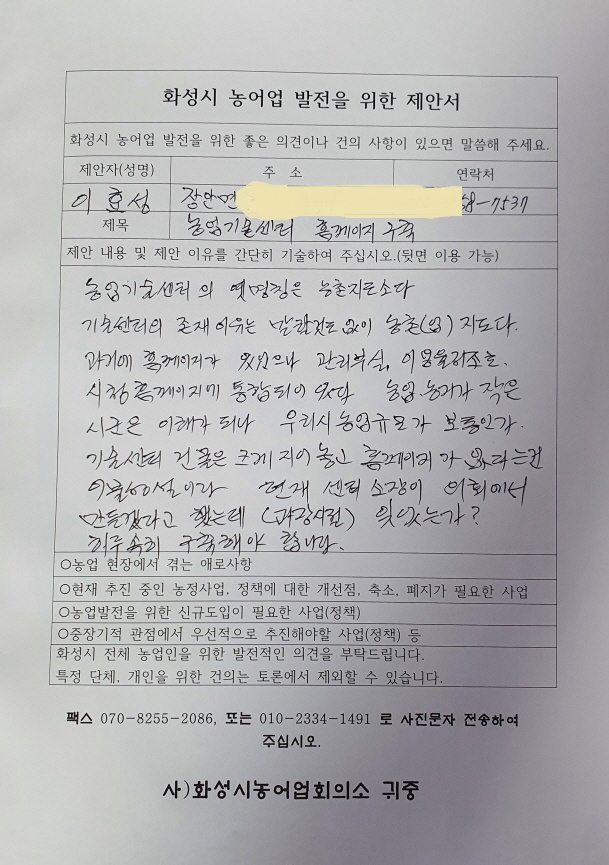 화성시 농어업 발전을 위한 제안서
화성시 농어업 발전을 위한 좋은 의견이나 건의 사항이 있으면 말씀해 주세요.
제안자(성명) 주 소 연락처
이효성 장안면 58-7537
제목 농업기술센터 홈페이지 구축
제안 내용 및 제안 이유를 간단히 기술하여 주십시오.(뒷면 이용 가능)
농업기술센터의 옛명칭은 농촌지도소다
기술센터의 존재이유는 말할것도 없이 농촌(업)지도다.
과거에 홈페이지가 있었으나 관리부실, 이용율저조로.
시청홈페이지에 통합되어 있다 농업.농가가 작은
시군은 이해가 되나 우리시 농업규모가 보통인가.
기술센터 건물은 크게 지어놓고 홈페이지가 없다는건
현재 센터소장이 의회에서
만들겠다고 했는데 (과장시절) 잊었는가?
구축해야 합니다.
○농업 현장에서 겪는 애로사항
○현재 추진 중인 농정사업, 정책에 대한 개선점, 축소, 폐지가 필요한 사업
○농업발전을 위한 신규도입이 필요한 사업(정책)
○중장기적 관점에서 우선적으로 추진해야할 사업(정책) 등
화성시 전체 농업인을 위한 발전적인 의견을 부탁드립니다.
특정 단체, 개인을 위한 건의는 토론에서 제외할 수 있습니다.
팩스 070-8255-2086, 또는 010-2334-1491 로 사진문자 전송하여
주십시오.
사)화성시농어업회의소 귀중